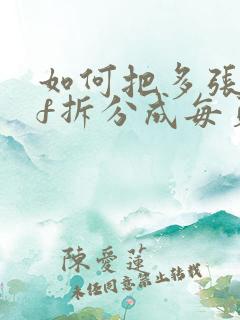 如何把多張
f拆分成每
陳愛蓮
未任同意禁止转載